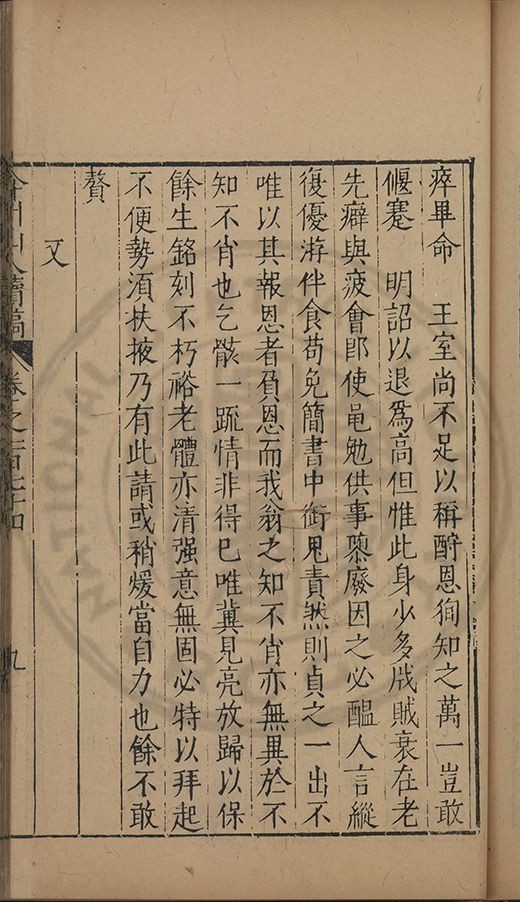 瘁畢命　王室尚不足以稱酧恩徇知之萬一豈敢
偃蹇　明詔以退爲高但惟此身少多戕賊衰在老
先癖與疲會卽使黽勉供事隳廢因之必醖人言縱
復優游伴食苟免簡書中銜鬼責然則貞之一出不
唯以其報恩者負恩而我翁之知不肖亦無異於不
知不肖也乞骸一疏情非得已唯冀見亮放歸以保
餘生銘刻不朽裕老體亦清强意無固必特以拜起
不便勢須扶掖乃有此請或稍煖當自力也餘不敢
贅
又
弇州山人續稿
卷之一百七十四
九